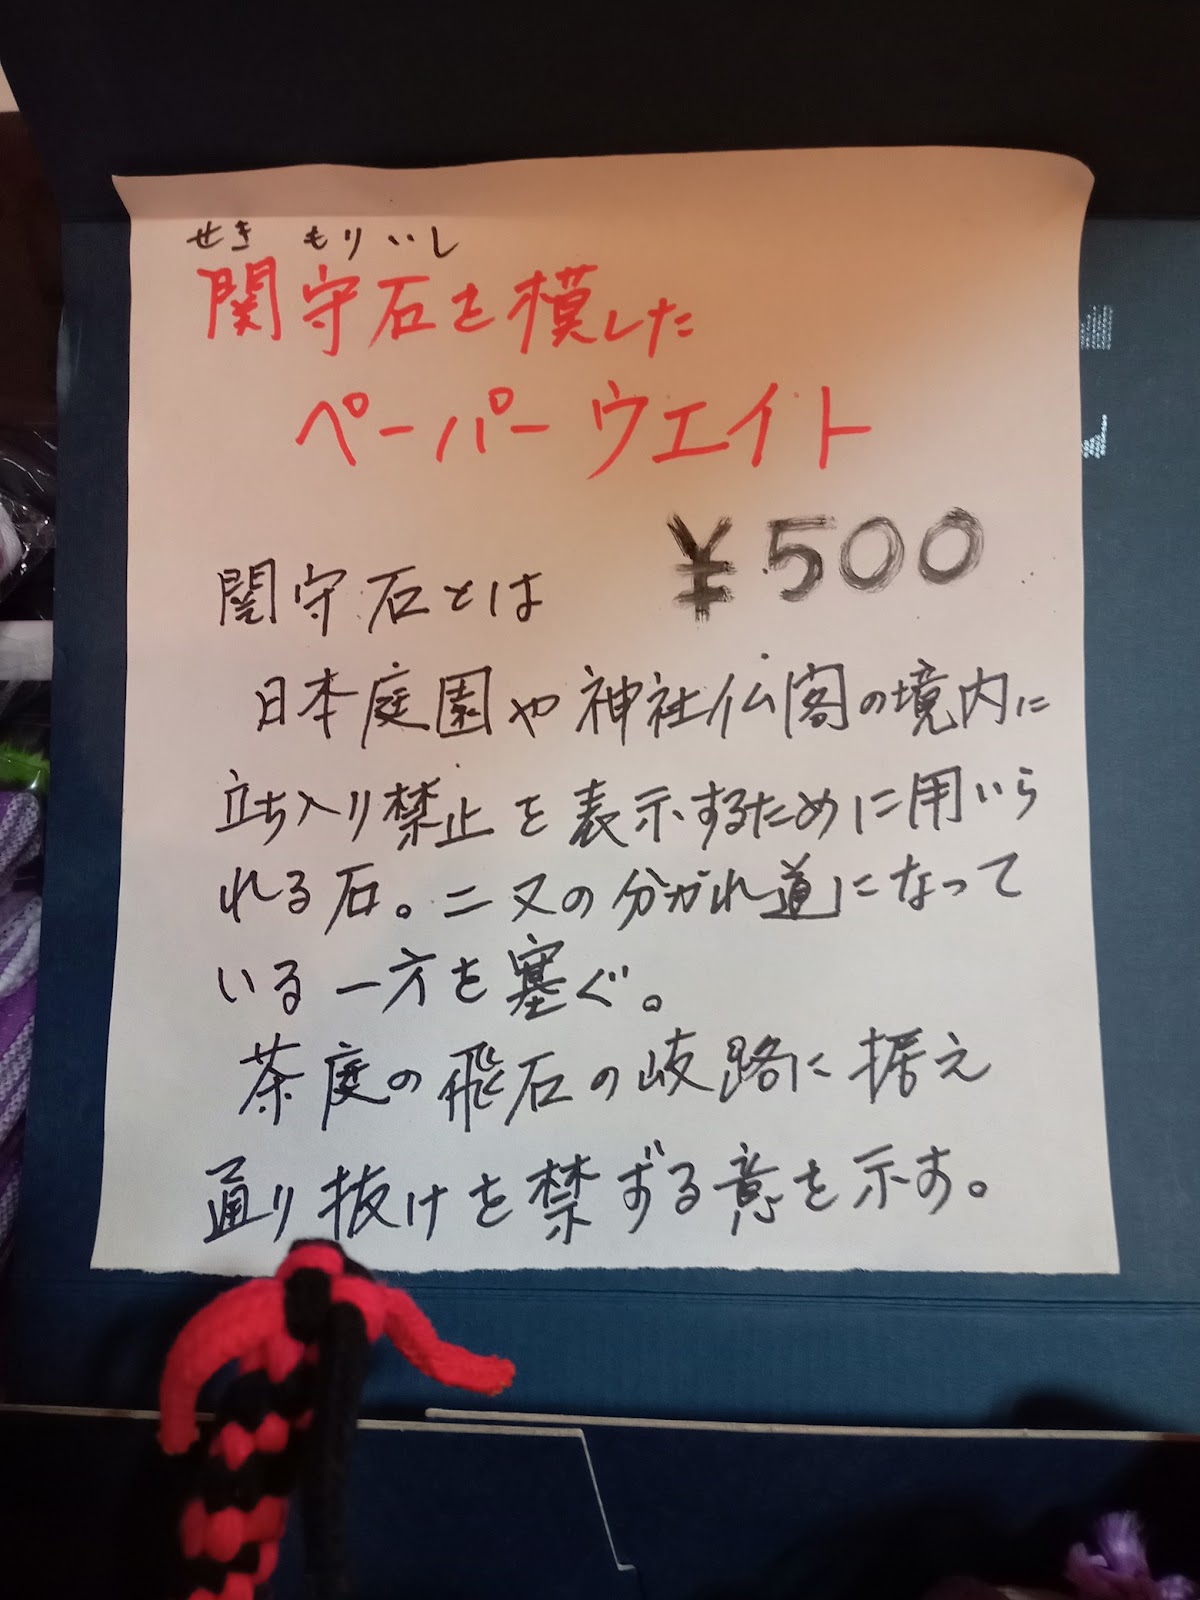 せきもりいし
関守石を模した
ペーパーウエイト
¥500
関守石とは
日本庭園や神社仏閣の境内に
立ち入り禁止を表示するために用いら
れる石。二又の分かれ道になって
いる一方を塞ぐ。
茶庭の飛石の岐路に据え
通り抜けを禁ずる意を示す。